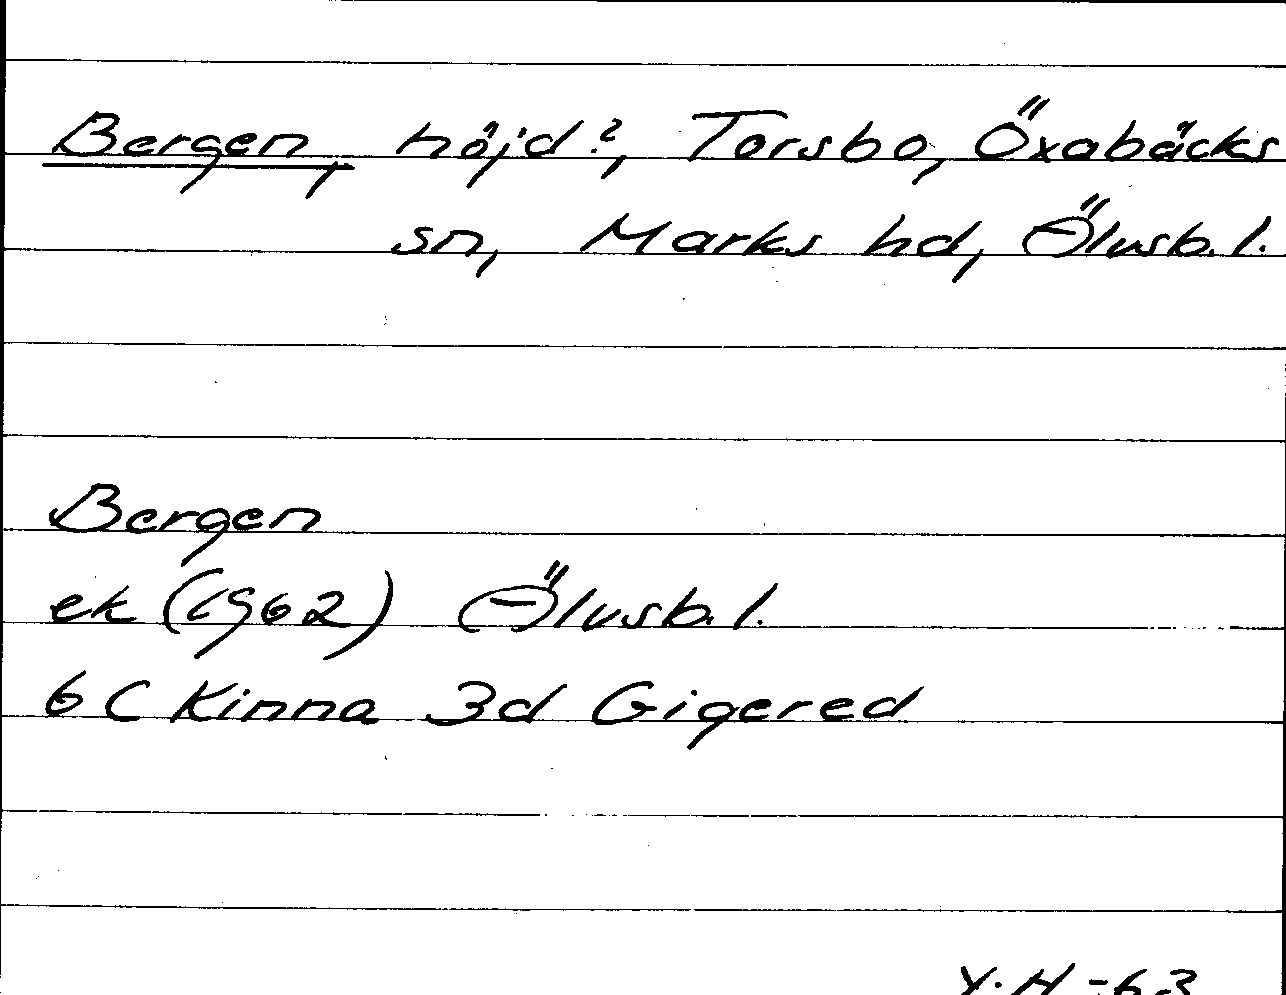 Bergen, höjd?, Torsbo, Öxabäcks
sn, Marks hd, Älvsb. l.
Bergen
ek (1962) Älvsb. l.
6 C Kinna 3d Gigered
Y.H -63